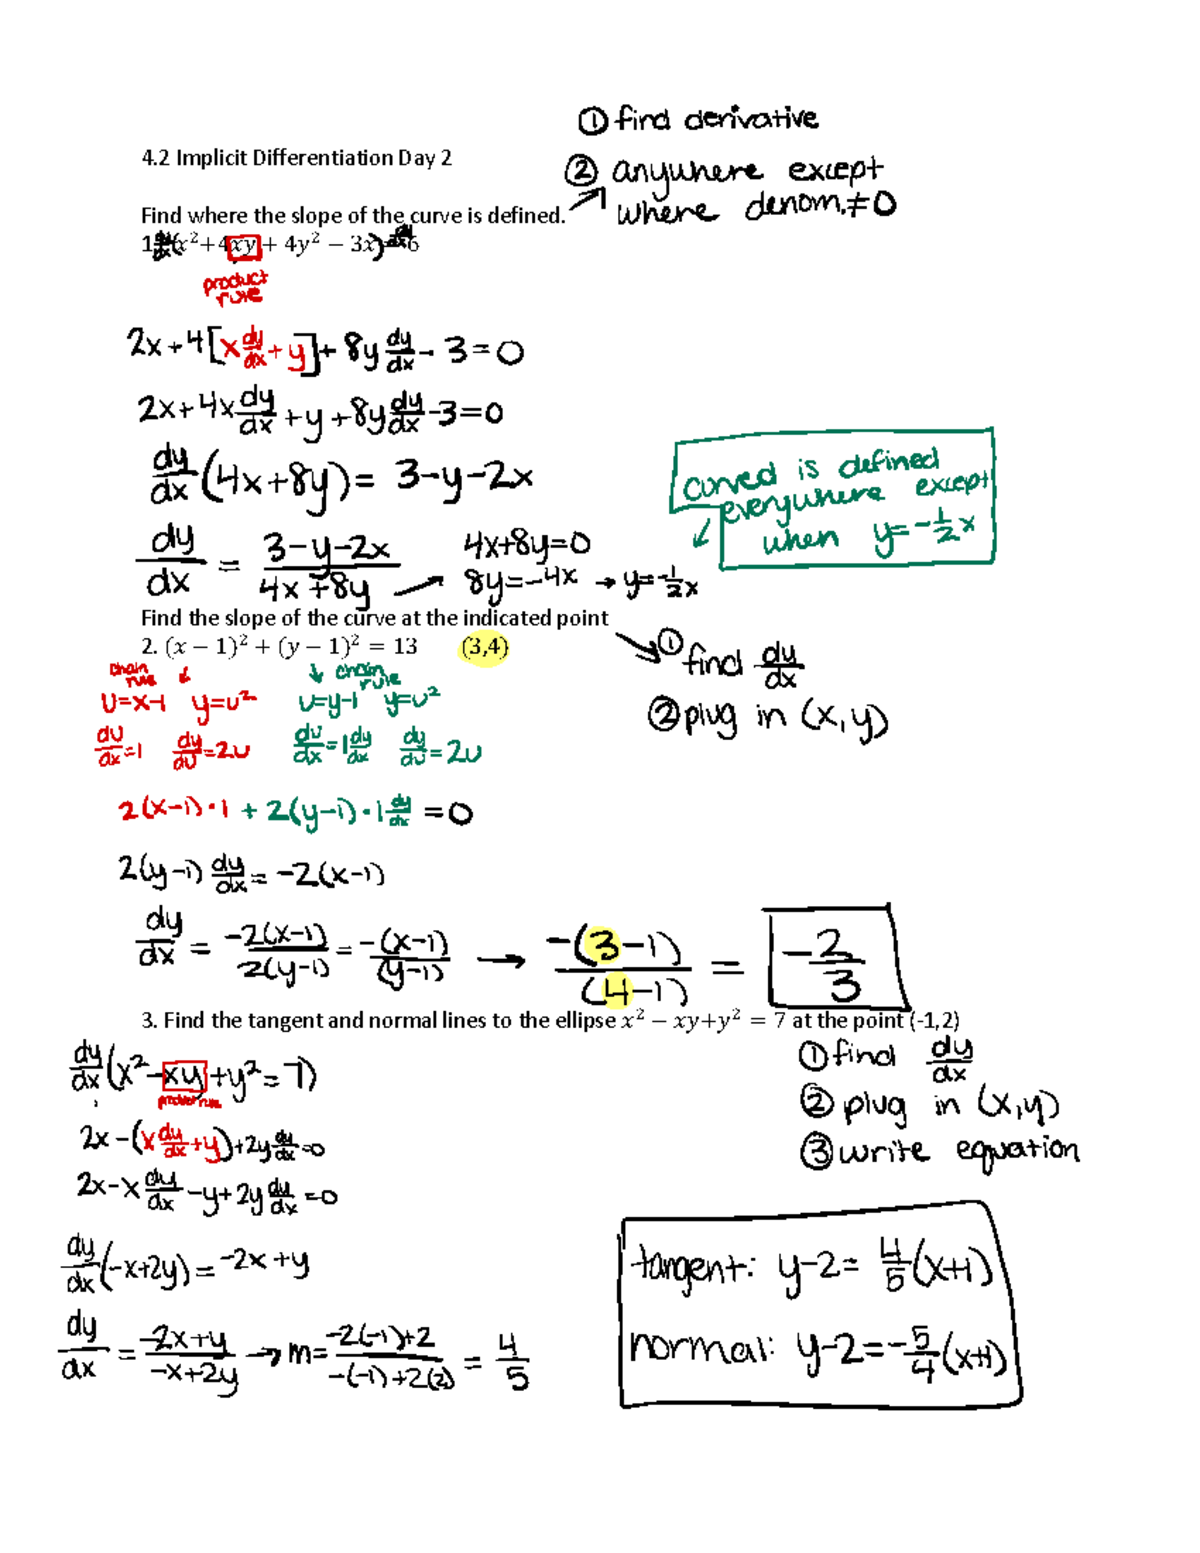 ① find derivative
4.2 Implicit Differentiation Day 2
② anywhere except
where denom.≠0
Find where the slope of the curve is defined.
1. d/dx(x²+4xy + 4y² − 3x) = 6
product
rule
2x+4[x dy/dx + y] + 8y dy/dx − 3 = 0
2x+4x dy/dx + y + 8y dy/dx − 3 = 0
dy/dx (4x+8y) = 3−y−2x
curved is defined
everywhere except
when y = −1/2 x
dy/dx = (3−y−2x)/(4x+8y)
4x+8y=0
8y=−4x → y=−1/2 x
Find the slope of the curve at the indicated point
2. (x − 1)² + (y − 1)² = 13 (3,4)
① find dy/dx
② plug in (x,y)
chain rule ↓ chain rule
u=x−1 y=u² u=y−1 y=u²
du/dx=1 dy/du=2u du/dx=1 dy/dx dy/du=2u
2(x−1)·1 + 2(y−1)·1 dy/dx = 0
2(y−1) dy/dx = −2(x−1)
dy/dx = −2(x−1)/2(y−1) = −(x−1)/(y−1) → −(3−1)/(4−1) = −2/3
3. Find the tangent and normal lines to the ellipse x² − xy+y² = 7 at the point (-1,2)
① find dy/dx
② plug in (x,y)
③ write equation
dy/dx (x²−xy+y²=7)
product rule
2x−(x dy/dx + y)+2y dy/dx=0
2x−x dy/dx −y+2y dy/dx=0
dy/dx(−x+2y) = −2x+y
dy/dx = (−2x+y)/(−x+2y) → m= (−2(−1)+2)/(−(−1)+2(2)) = 4/5
tangent: y−2= 4/5(x+1)
normal: y−2=−5/4(x+1)